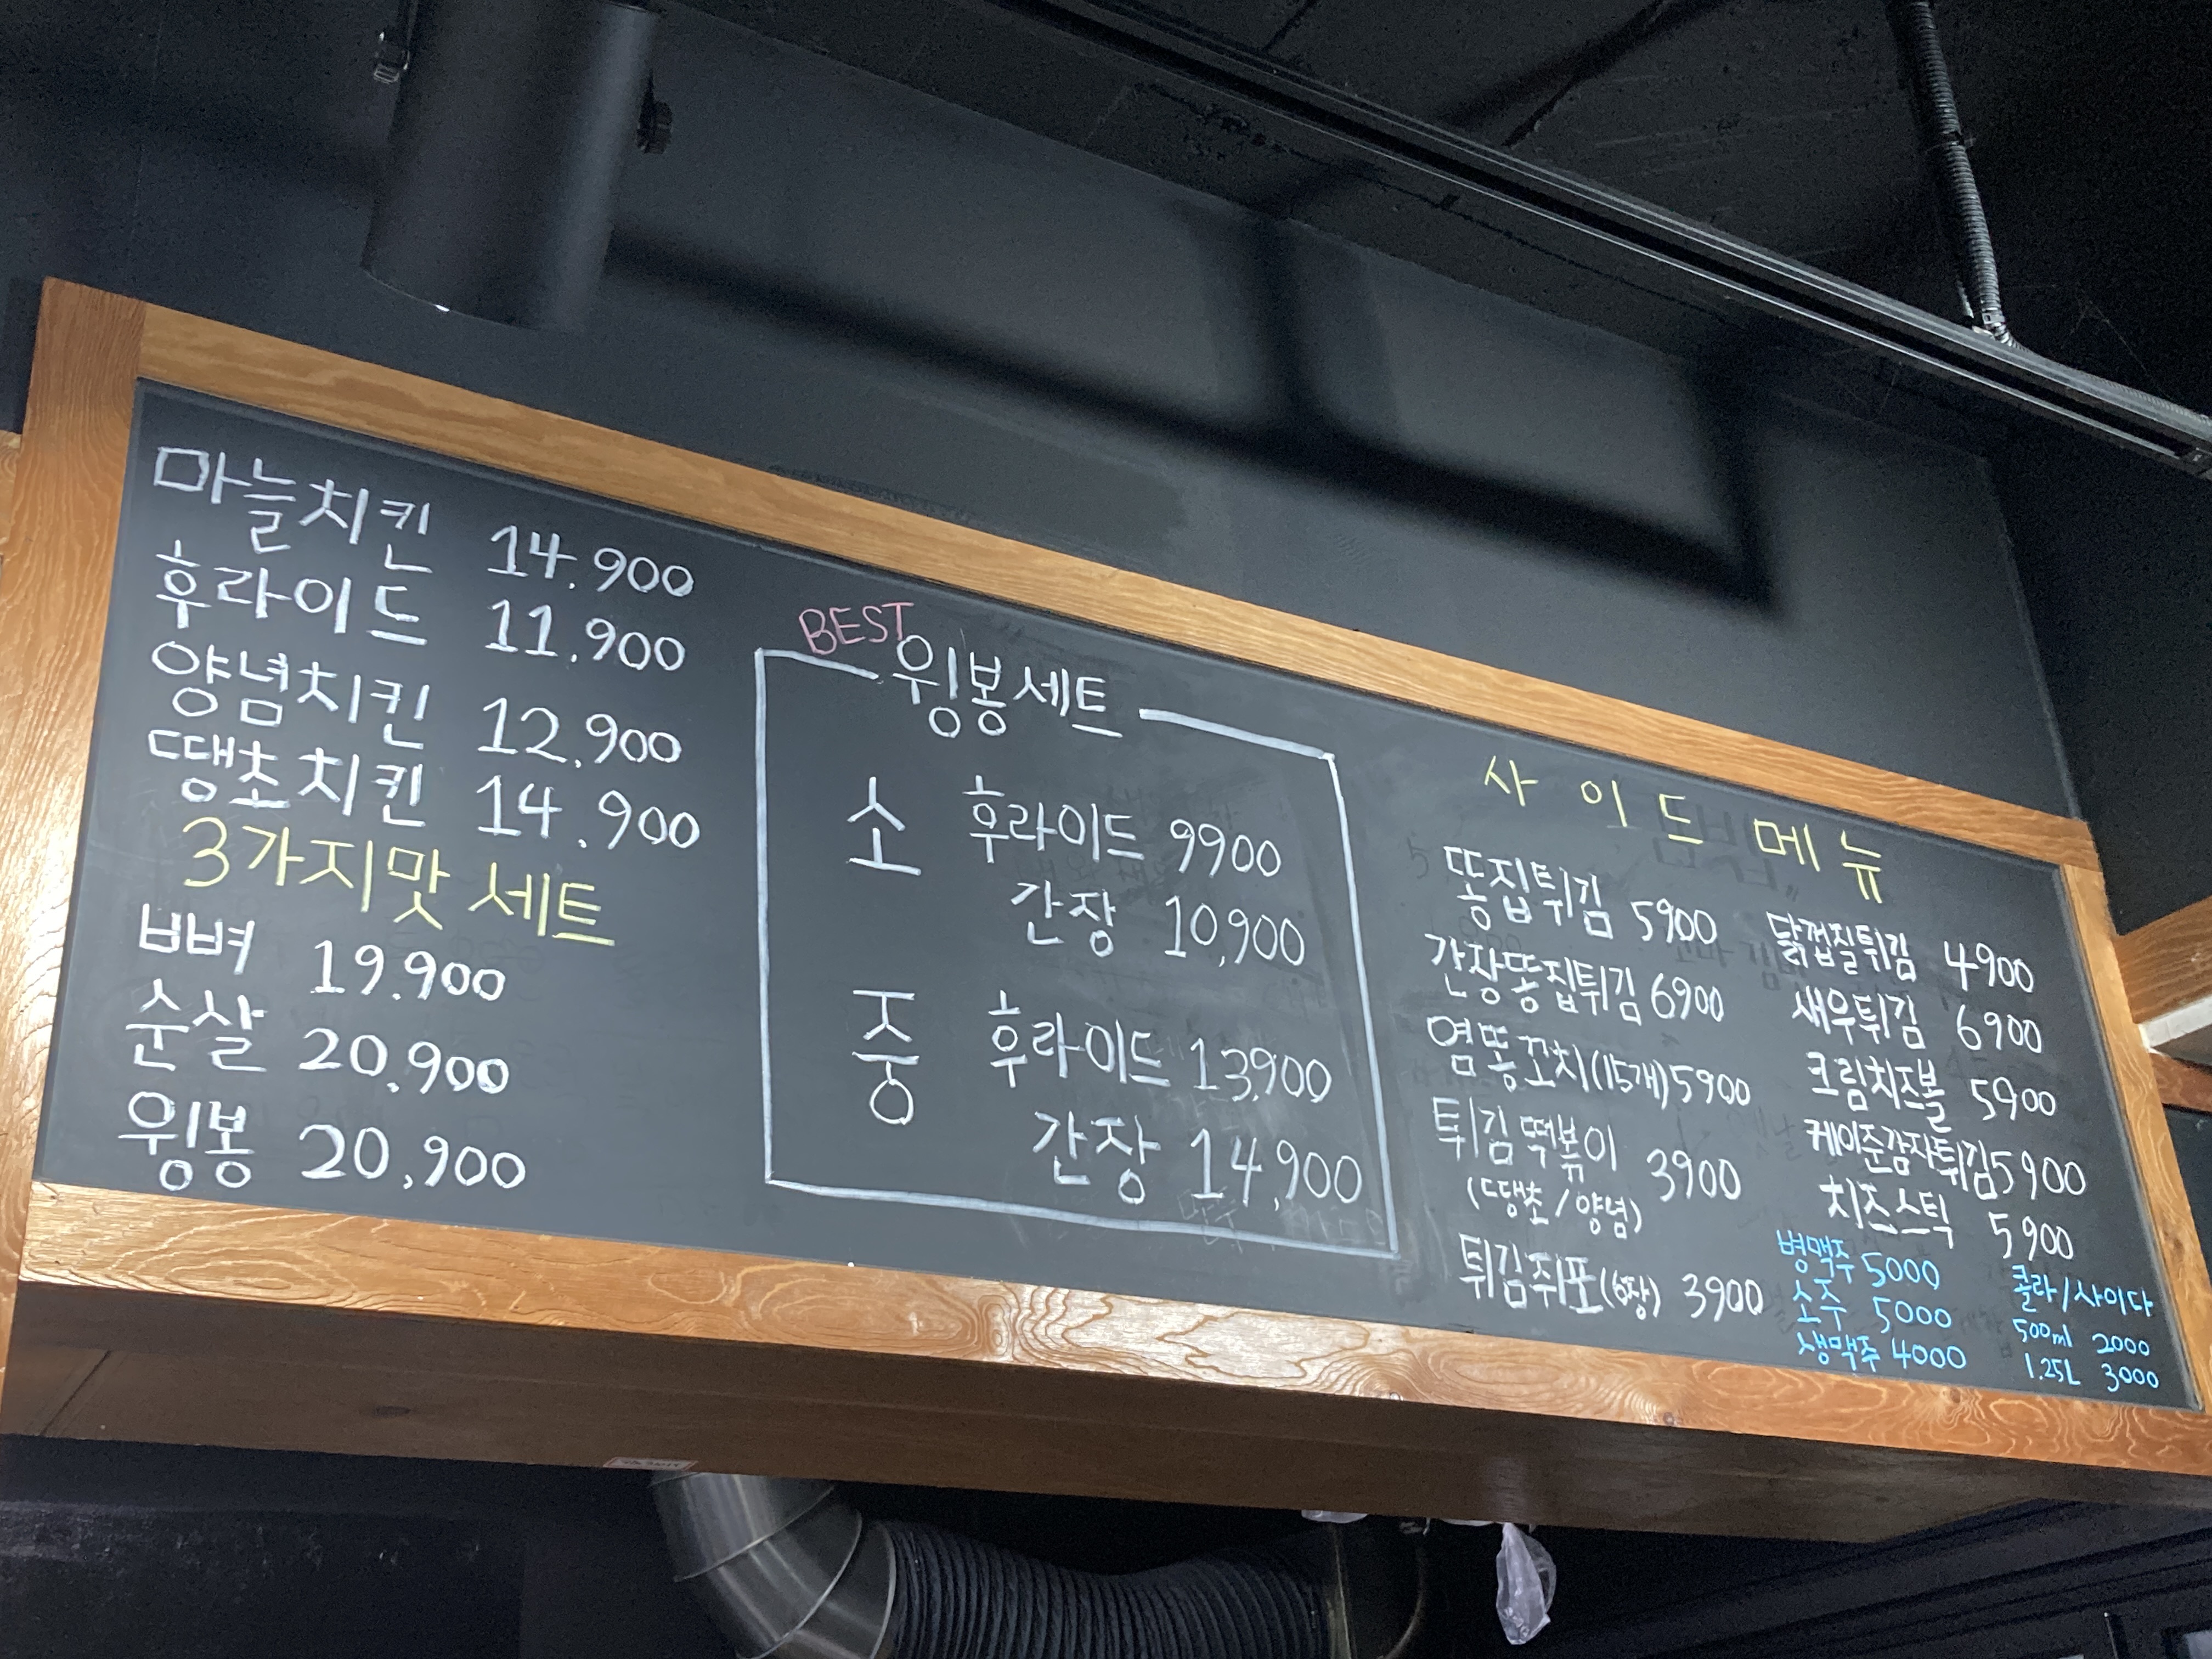 마늘치킨 14.900
후라이드 11.900
양념치킨 12.900
땡초치킨 14.900
3가지맛 세트
뼈 19.900
순살 20.900
윙봉 20,900
BEST
윙봉세트
소 후라이드 9900
간장 10,900
중 후라이드 13,900
간장 14,900
사이드 메뉴
똥집튀김 5900
간장똥집튀김 6900
염똥꼬치(15개) 5900
튀김떡볶이 3900
(땡초/양념)
튀김쥐포(6장) 3900
닭껍질튀김 4900
새우튀김 6900
크림치즈볼 5900
케이준감자튀김 5900
치즈스틱 5900
병맥주 5000
소주 5000
생맥주 4000
콜라/사이다
500ml 2000
1.25L 3000